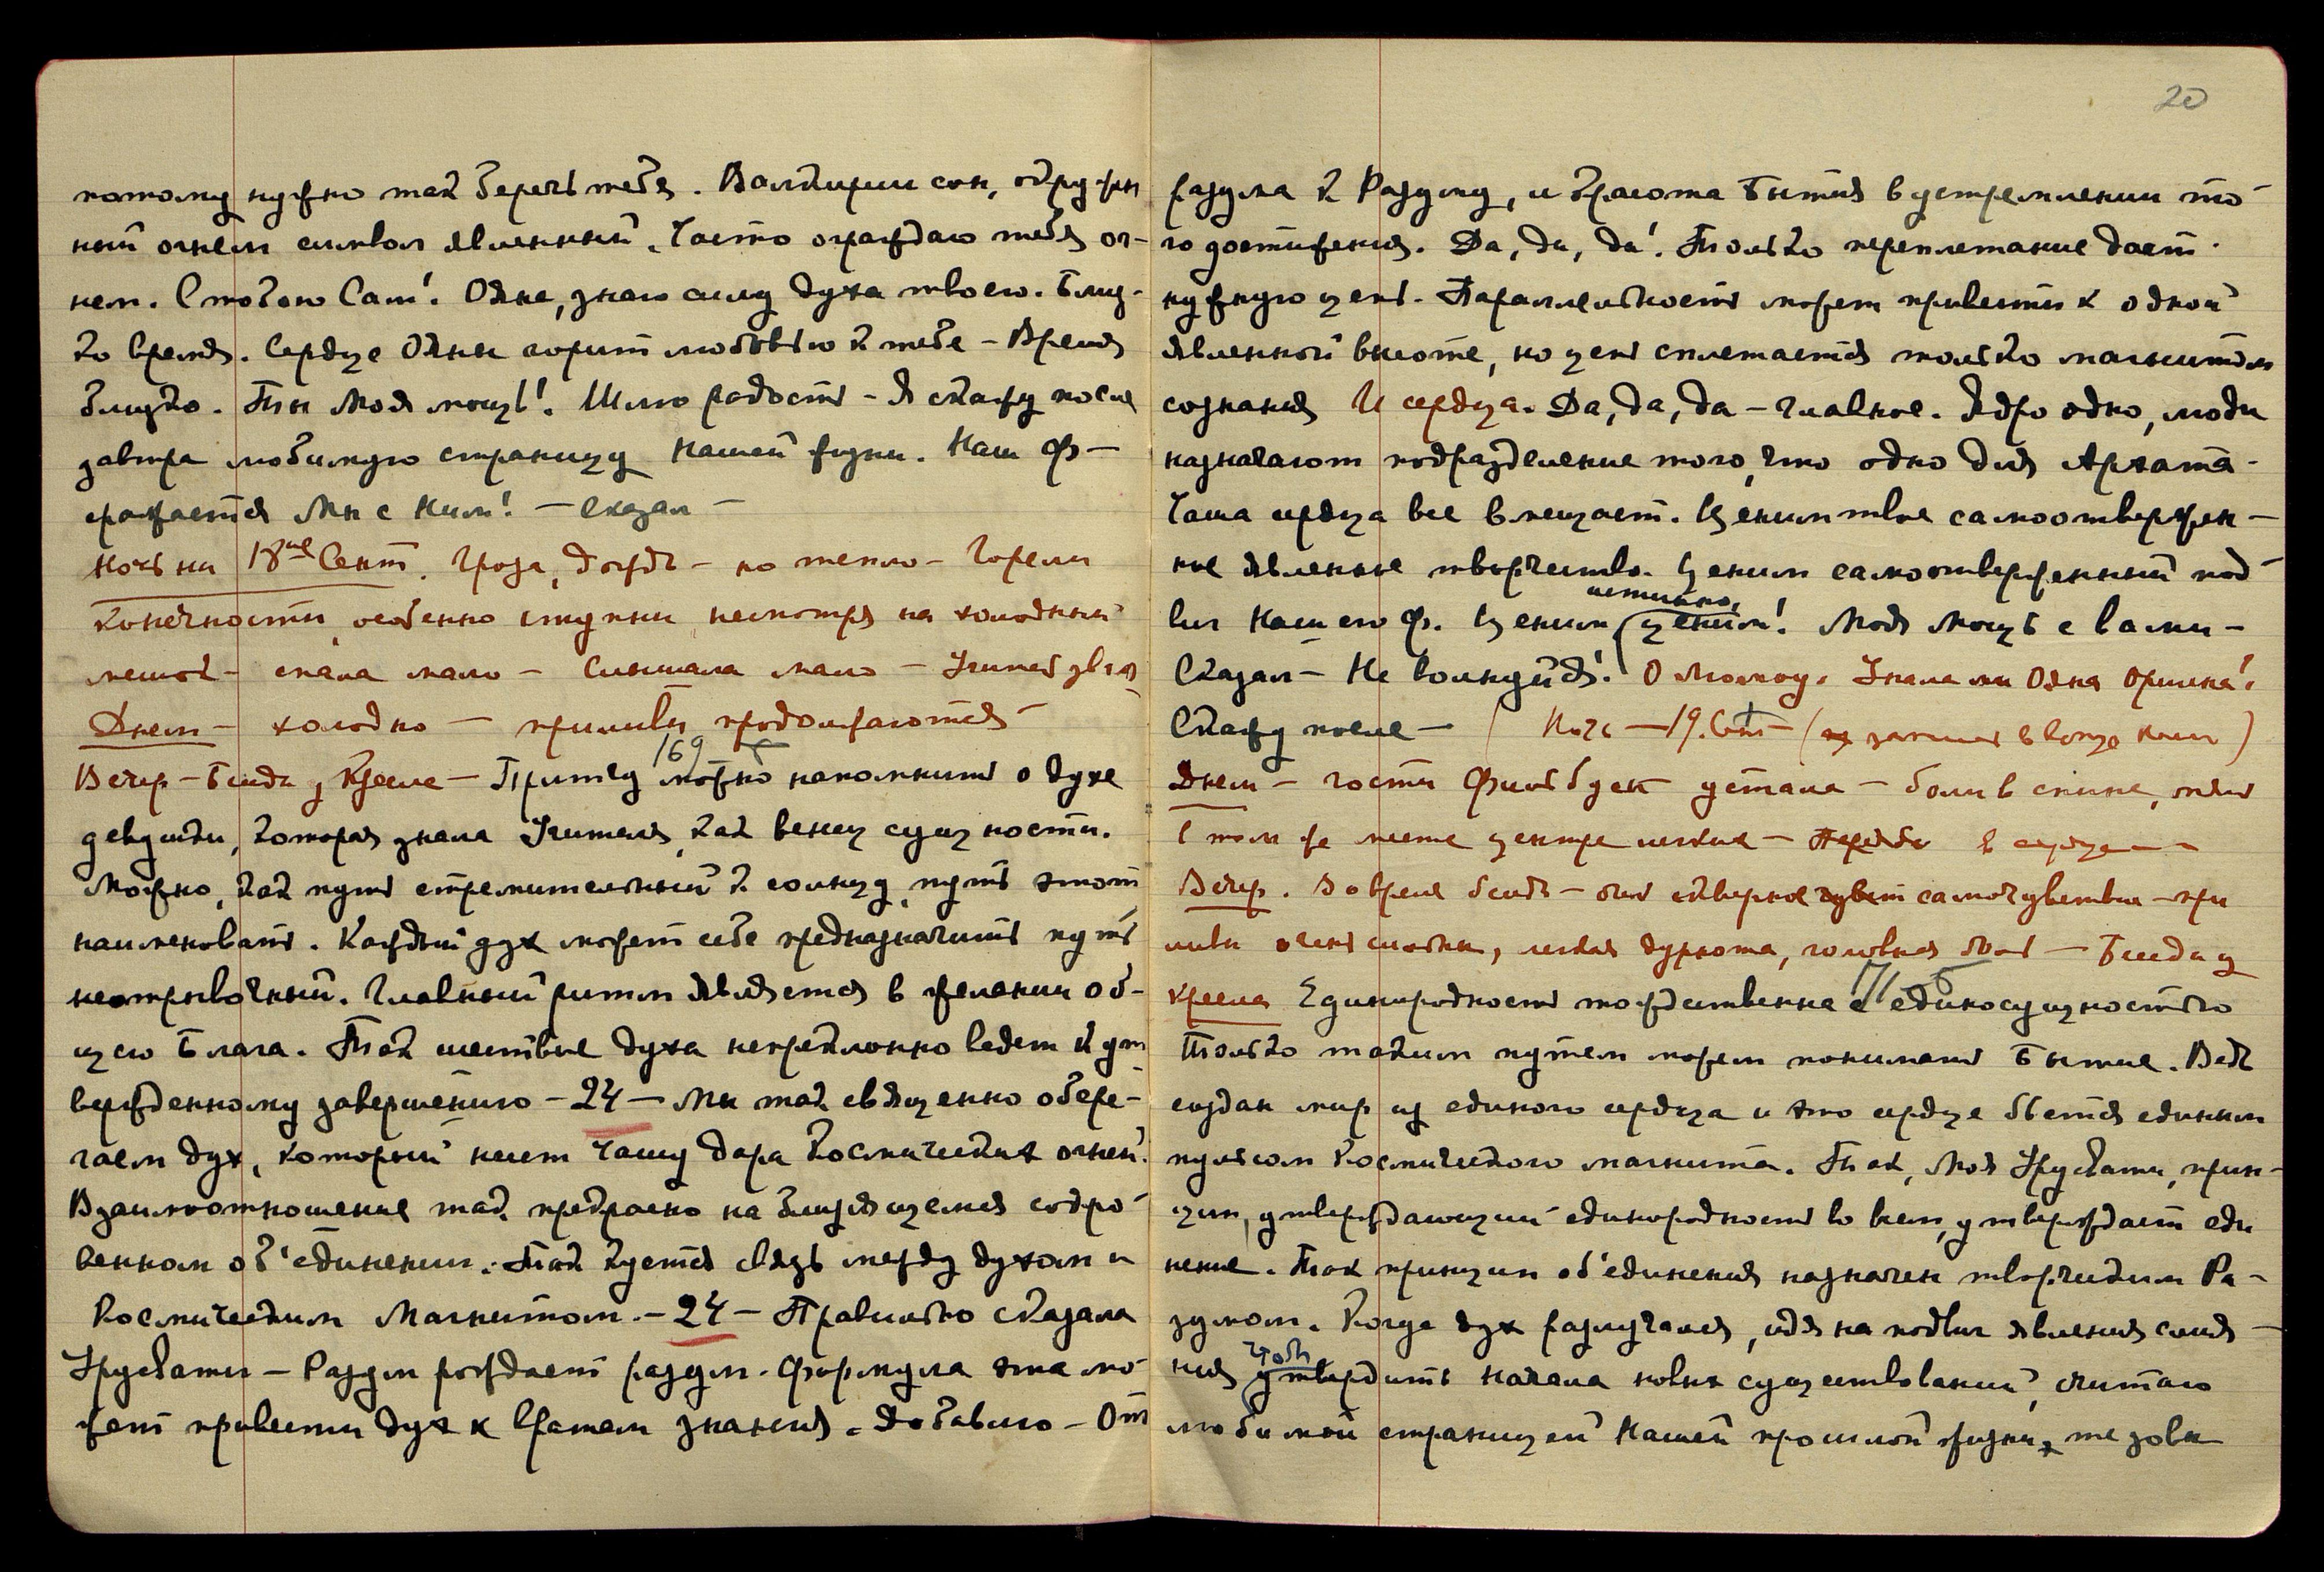 20
потому нужно так беречь тебя. Валькирии сон, окружен
ный огнем символ явленный. Часто ограждаю тебя ог-
нем. С тобою Сам! Ояна, знаю силу духа твоего. Близ-
ко время. Сердце Ояны горит любовью к тебе – Время
близко. Ты Моя мощь! Шлю радость – Я скажу после
завтра любимую страницу Нашей жизни. Наш Ф –
сражается Мы с Ним! – Сказал –
Ночь на 18ое Сент. Гроза, дождь – но тепло – Горели
конечности, особенно ступни несмотря на холодный
мешок – спала мало – Слышала мало –
Днем – холодно – приливы продолжаются –
169 Б
Вечер – Беседа у Кресла – Притчу можно напомнить о духе
девушки, которая знала Учителя, как венец сущности.
Можно, как путь стремительный к солнцу, путь этот
наименовать. Каждый дух может себе предназначить путь
неотрывочный. Главный ритм является в желании об-
щего Блага. Так шествие духа непреклонно ведет к ут
вержденному завершению – 24 – Мы так священно обере-
гаем дух, который несет Чашу дара Космических огней.
Взаимоотношение так прекрасно на близящемся сокро-
венном об'единении. Так куется связь между духом и
Космическим Магнитом. – 24 – Правильно сказала
Урусвати – Разум рождает разум. Формула эта мо-
жет привести дух к Вратам знания. Добавлю – От
разума к Разуму, и красота Бытия в устремлении то-
го достижения. Да, да, да! Только переплетание дает
нужную цепь. Параллельность может привести к одной
явленной высоте, но цепь сплетается только магнитом
сознания И сердца. Да, да, да – главное. Ядро одно, люди
назначают подразделение того, что одно для Архата –
Чаша сердца все вмещает. Ценим твое самоотвержен –
ное явленное творчество. Ценим самоотверженный под
истинно,
виг Нашего Ф. Ценим ценим! Моя Мощь с вами –
Сказал – Не волнуйся! О Логмоу. Знала ли Ояна Ориона!
Скажу после – ( Ночь – 19. Сент – ( записи в конце книги )
Днем – гости Фильбук устала – боли в спине, опять
в том же месте центре легких – в сердце – –
Вечер. Во время беседы – был скверное самочувствие – при
ливы очень сильны, легкая дурнота, головная боль – Беседа у
171 Б
кресла Единородность тождественна с единосущностью
Только таким путем можем понимать Бытие. Ведь
создан мир из единого сердца и это сердце бьется единым
пульсом Космического магнита. Так, Моя Урусвати, прин-
цип, утверждающий единородность во всем, утверждает еди
нение. Так принцип об'единения назначен творческим Ра –
зумом. Когда дух разлучался, идя на подвиг явления слия –
чтоб
ния утвердить начала новых существований, считаю
любимой страницей Нашей прошлой жизни, те зовы